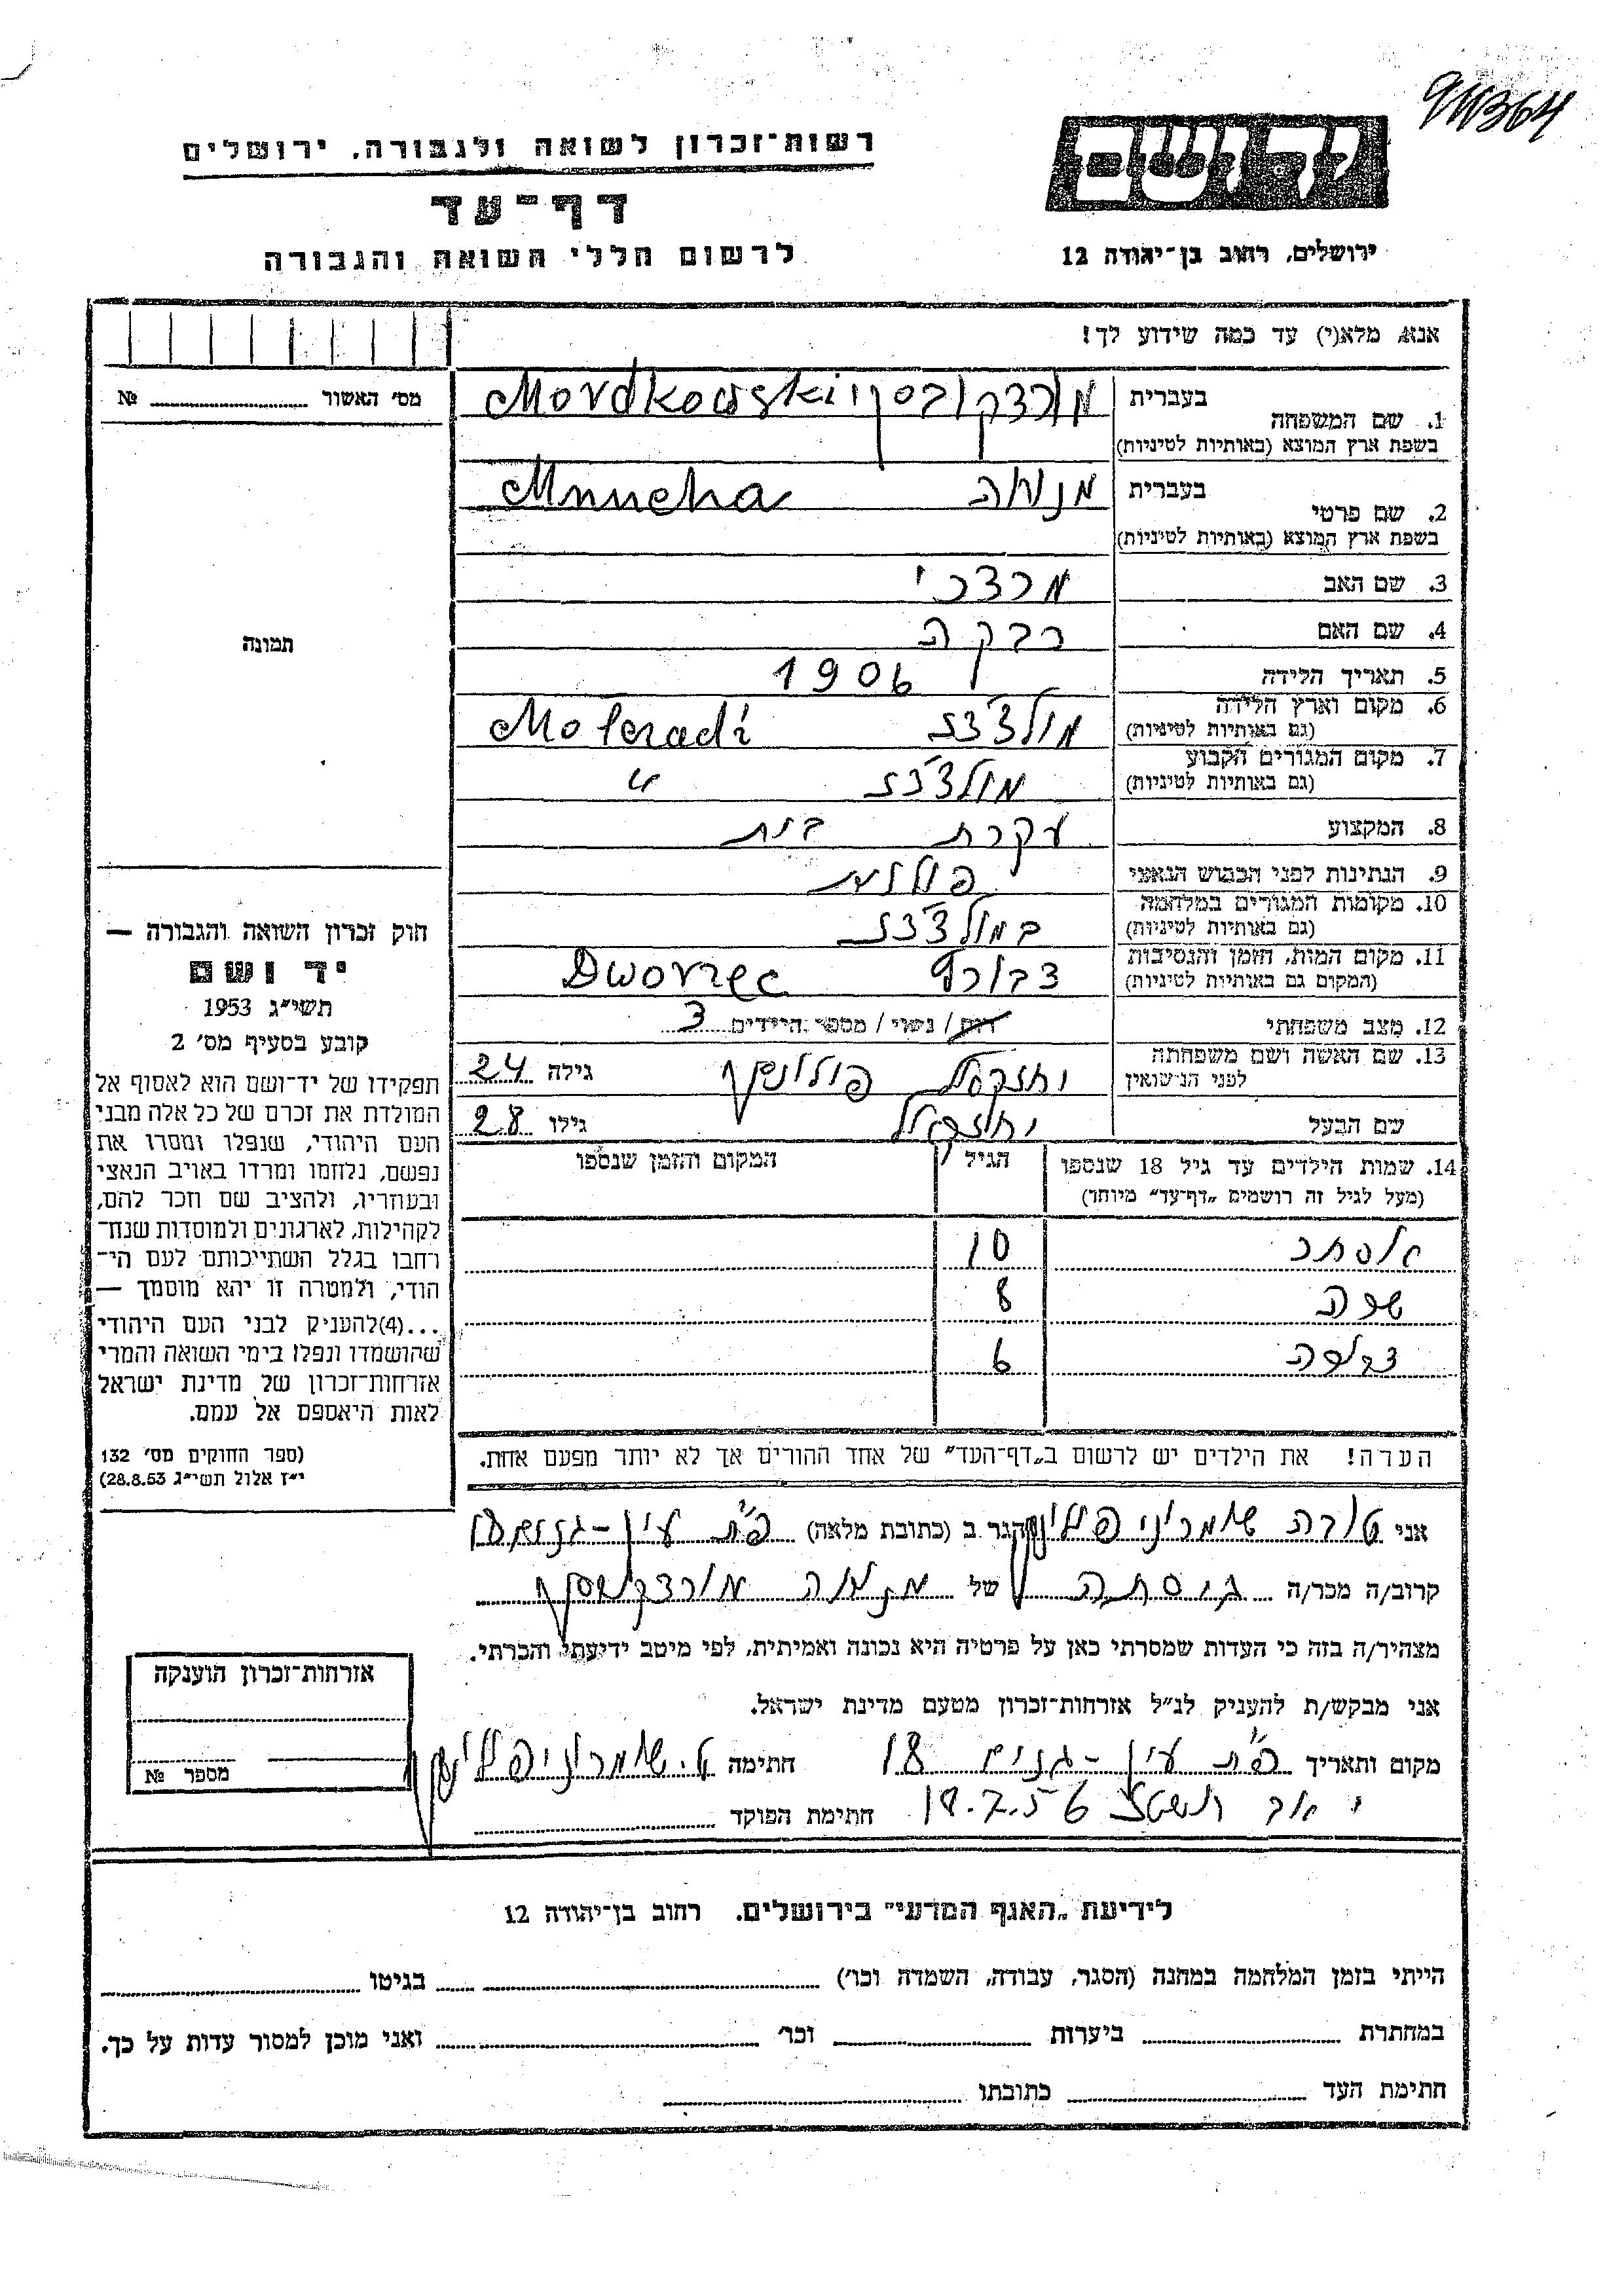 911364
רשות־זכרון לשואה ולגבורה, ירושלים
דף־עד
לרשום חללי השואה והגבורה
יד ושם
ירושלים, רחוב בן־יהודה 12
אנא מלא(י) עד כמה שידוע לך!
מס׳ האשור № 
1. שם המשפחה בעברית מורדקובסקי Mordkowski
בשפת ארץ המוצא (באותיות לטיניות)
2. שם פרטי בעברית מנוחה Mnucha
בשפת ארץ המוצא (באותיות לטיניות)
3. שם האב מרדכי
4. שם האם רבקה
5. תאריך הלידה 1906
6. מקום וארץ הלידה
(גם באותיות לטיניות)
7. מקום המגורים הקבוע "
(גם באותיות לטיניות)
8. המקצוע עקרת בית
9. הנתינות לפני הכבוש הנאצי
10. מקומות המגורים במלחמה
(גם באותיות לטיניות)
11. מקום המות, הזמן והנסיבות Dworzec
(המקום גם באותיות לטיניות)
12. מצב משפחתי רוק / נשוי / מספר הילדים 3
13. שם האשה ושם משפחתה
לפני הנישואין גילה 24
שם הבעל יחזקאל גילו 28
14. שמות הילדים עד גיל 18 שנספו הגיל המקום והזמן שנספו
(מעל לגיל זה רושמים „דף־עד” מיוחד)
אסתר 10
שרה 8
6
הערה! את הילדים יש לרשום ב„דף־העד” של אחד ההורים אך לא יותר מפעם אחת.
תמונה
חוק זכרון השואה והגבורה —
יד ושם
תשי״ג 1953
קובע בסעיף מס׳ 2
תפקידו של יד־ושם הוא לאסוף אל
המולדת את זכרם של כל אלה מבני
העם היהודי, שנפלו ומסרו את
נפשם, נלחמו ומרדו באויב הנאצי
ובעוזריו, ולהציב שם וזכר להם,
לקהילות, לארגונים ולמוסדות שנח־
רבו בגלל השתייכותם לעם הי־
הודי, ולמטרה זו יהא מוסמך —
...(4)להעניק לבני העם היהודי
שהושמדו ונפלו בימי השואה והמרי
אזרחות־זכרון של מדינת ישראל
לאות היאספם אל עמם.
(ספר החוקים מס׳ 132
י״ז אלול תשי״ג 28.8.53)
אני טובה הגר ב (כתובת מלאה) פ״ת עין-גנים 18
קרוב/ה מכר/ה גיסתה של מנוחה מורדקובסקי
מצהיר/ה בזה כי העדות שמסרתי כאן על פרטיה היא נכונה ואמיתית, לפי מיטב ידיעתי והכרתי.
אני מבקש/ת להעניק לנ״ל אזרחות־זכרון מטעם מדינת ישראל.
מקום ותאריך פ״ת עין-גנים 18 חתימה
18.7.56 חתימת הפוקד
אזרחות־זכרון הוענקה
מספר №
לידיעת „האגף המדעי” בירושלים, רחוב בן־יהודה 12
הייתי בזמן המלחמה במחנה (הסגר, עבודה, השמדה וכו׳) בגיטו
במחתרת ביערות וכו׳ ואני מוכן למסור עדות על כך.
חתימת העד כתובתו